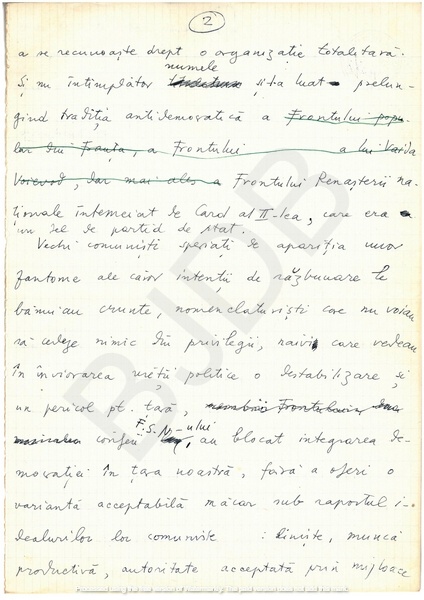 2
a se recunoaște drept o organizație totalitară.
numele
Și nu întîmplător și-a luat prelun-
gind tradiția antidemocratică a Frontului popu-
lar din Franța, a Frontului a lui Vaida
Voievod, dar mai ales a Frontului Renașterii na-
ționale întemeiat de Carol al II-lea, care era
un fel de partid de stat.
Vechi comuniști speriați de apariția unor
fantome ale căror intenții de răzbunare le
bănuiau crunte, nomenclaturiști care nu voiau
să cedeze nimic din privilegii, naivi care vedeau
în învîorarea vieții politice o destabilizare și
un pericol pt. țară,
F.S.N-ului
au blocat integrarea de-
mocrației în țara noastră, fără a oferi o
variantă acceptabilă măcar sub raportul i-
dealurilor lor comuniste : liniște, muncă
productivă, autoritate acceptată prin mijloace
BJDB